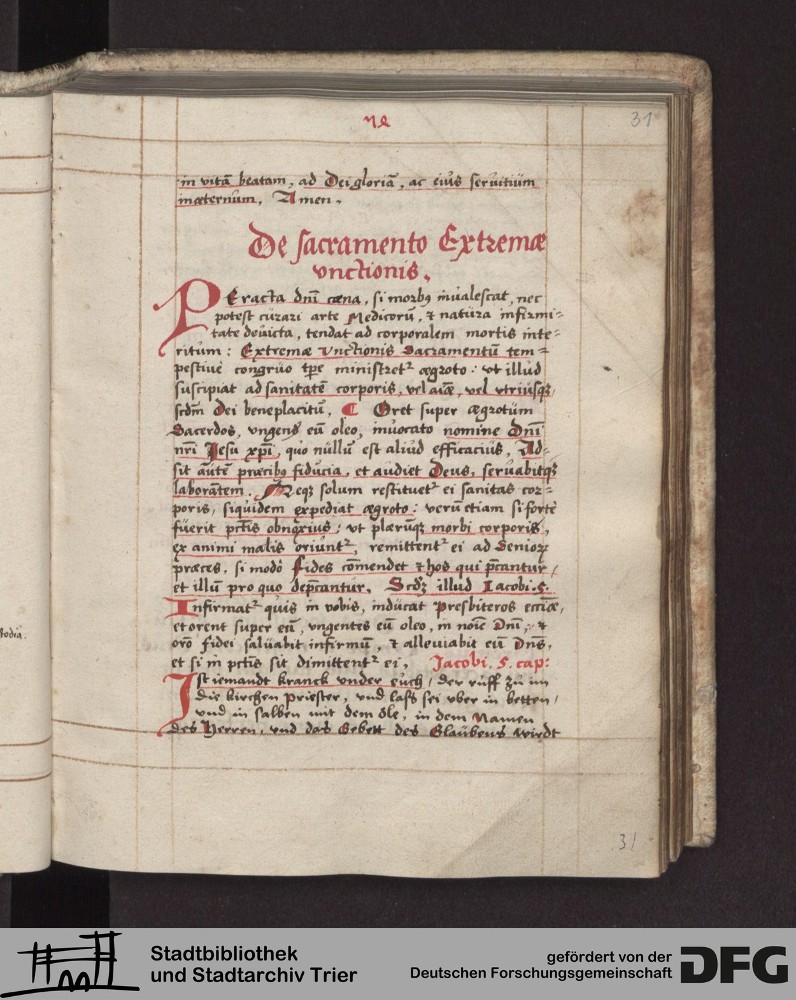 31
in vitā beatam, ad Dei gloriā, ac eius seruitium
inæternum. Amen.
De sacramento Extremæ
vnctionis.
PEracta dnī cœna, si morbꝰ inualescat, nec
potest curari arte Medicorū, & natura infirmi-
tate deuicta, tendat ad corporalem mortis inte-
ritum: Extremæ Vnctionis Sacramentū tem-
pestiuè congruo tpe ministretr ægroto: vt illud
suscipiat ad sanitatē corporis, vel aīæ, vel vtriusqꝫ,
scdm Dei beneplacitū. Oret super ægrotum
Sacerdos, vngens eū oleo, inuocato nomine Dnī
nrī Jesu xpī, quo nullū est aliud efficacius, Ad-
sit autē præcibꝰ fiducia, et audiet Deus, seruabitqꝫ
laborantem. Neqꝫ solum restituetr ei sanitas cor-
poris, siquidem expediat ægroto: verū etiam si fortè
fuerit pctīs obnoxius: vt plærūqꝫ morbi corporis,
ex animi malis oriuntr, remittentr ei ad Seniorꝝ
præces, si modò Fides cōmendet & hos qui pcantur,
et illū pro quo depcantur. Scdꝫ illud Iacobi. 5.
Infirmatr quis in vobis, inducat Presbiteros eccīæ,
et orent super eū, vngentes eū oleo, in noīe Dnī, &
orō fidei saluabit infirmū, & alleuiabit eū Dns,
et si in pctīs sit dimittentr ei. Jacobi. 5. cap:
Jst iemandt kranck vnder euch, der ruff zu im
die kirchen Priester, vnd lass sei vber in betten,
vnd in salben mit dem öle, in dem Namen
des Herren, vnd das Gebett des Glaubens wirdt
31
Stadtbibliothek
und Stadtarchiv Trier
gefördert von der
Deutschen Forschungsgemeinschaft
DFG